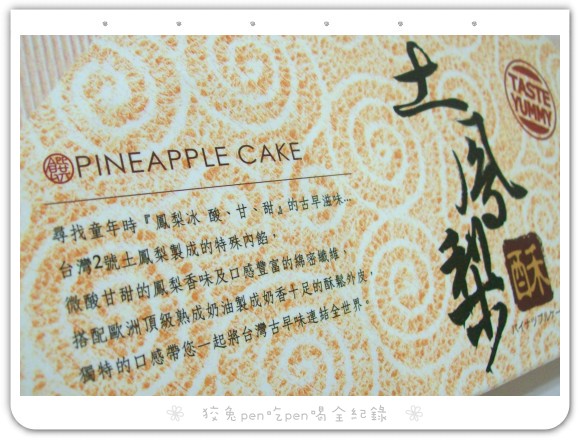 饌PINEAPPLE CAKE
尋找童年時『鳳梨冰 酸、甘、甜』的古早滋味...
台灣2號土鳳梨製成的特殊內餡，
微酸甘甜的鳳梨香味及口感豐富的綿密纖維，
搭配歐洲頂級熟成奶油製成奶香十足的酥鬆外皮，
獨特的口感帶您一起將台灣古早味連結全世界。
土鳳梨
酥
TASTE
YUMMY
パイナップルケー
狡兔pen吃pen喝全紀錄